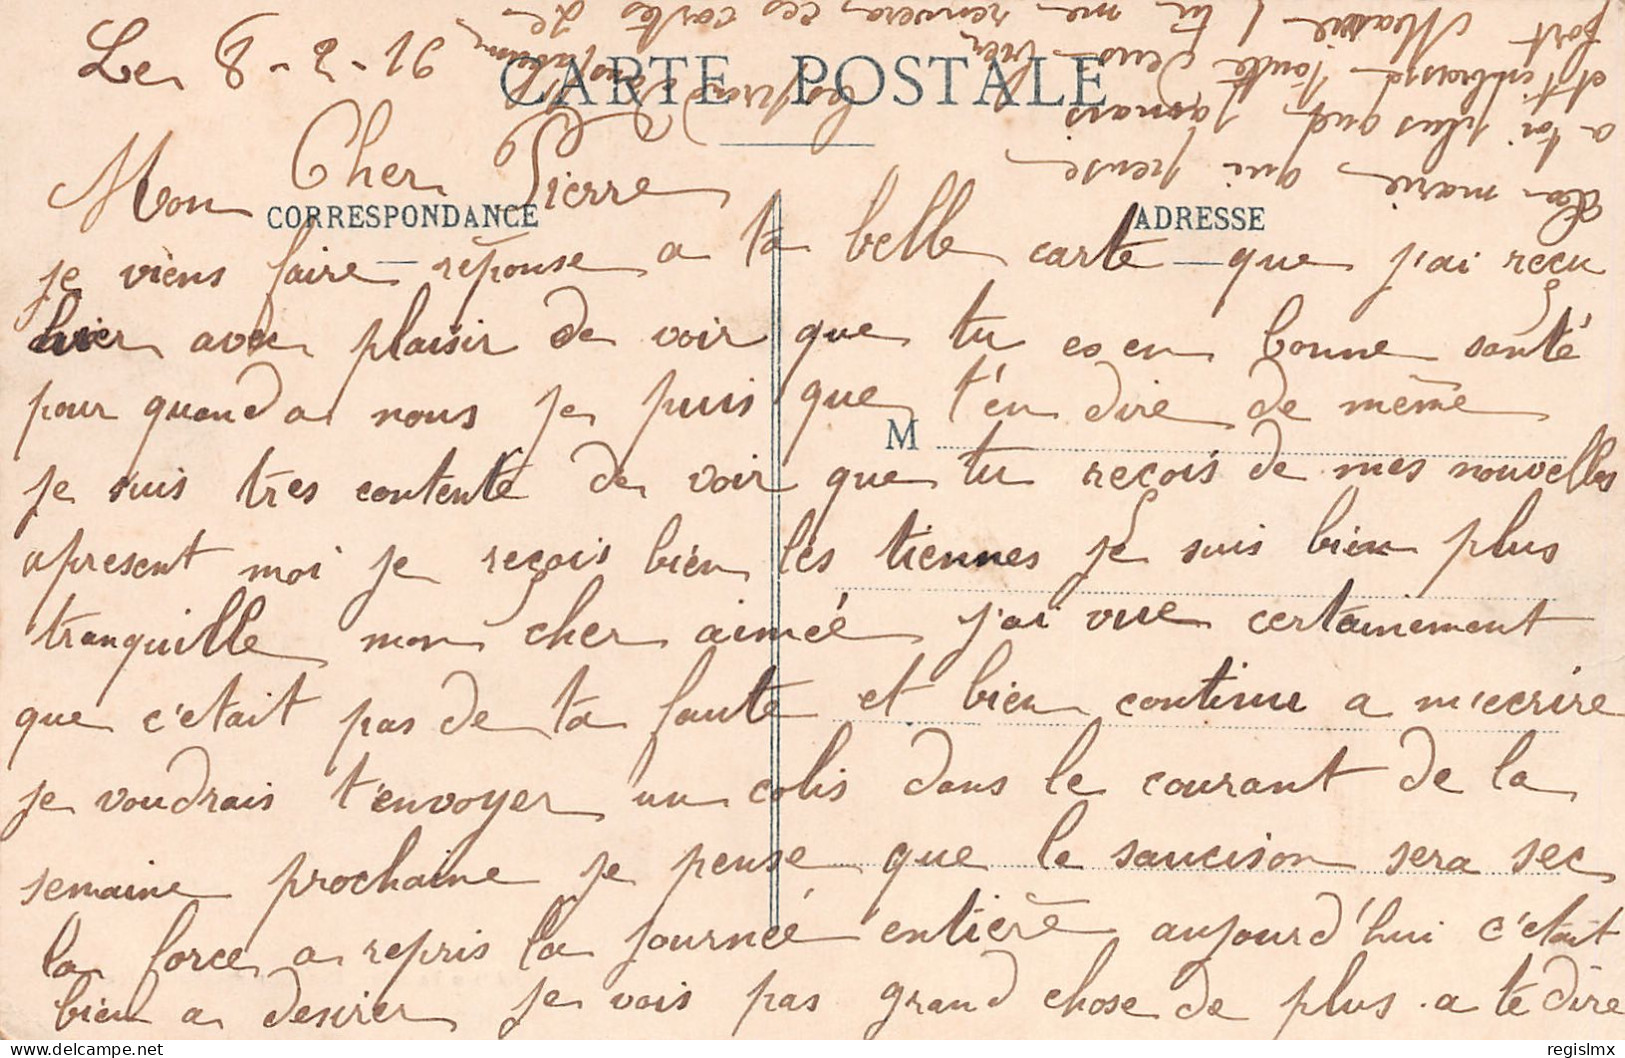 Le 8-2-16
CARTE POSTALE
Mon Cher Pierre
CORRESPONDANCE
ADRESSE
je viens faire réponse a ta belle carte que j'ai reçu
hier avec plaisir de voir que tu es en bonne santé
pour quand a nous je puis que t'en dire de même
M
je suis tres contente de voir que tu reçois de mes nouvelles
apresent moi je reçois bien les tiennes je suis bien plus
tranquille mon cher aimée j'ai vue certainement
que c'etait pas de ta faute et bien continu a m'ecrire
je voudrais t'envoyer un colis dans le courant de la
semaine prochaine je pense que le saucison sera sec
la force a repris la journée entière aujourd'hui c'était
bien a desirer je vois pas grand chose de plus a te dire
ta marie qui pense
a toi plus que jamais
et t'embrasse toute seus bien
fort Marie tu me renverra ces cartes de
regislmx